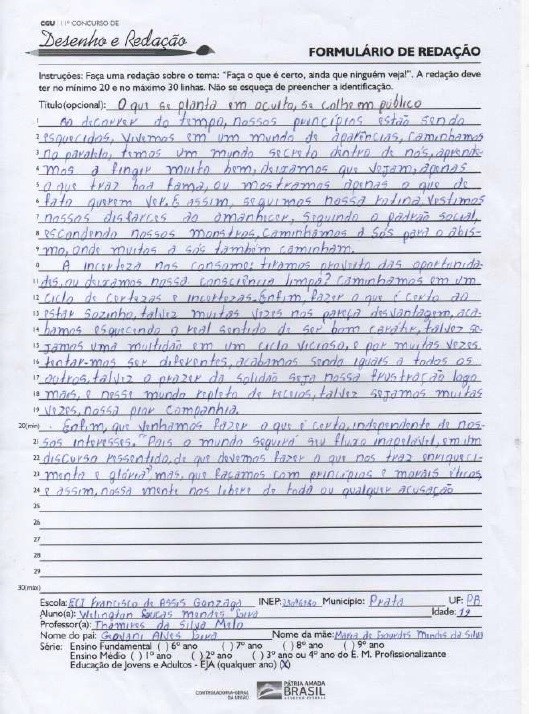 CGU | 11º CONCURSO DE
Desenho e Redação
FORMULÁRIO DE REDAÇÃO
Instruções: Faça uma redação sobre o tema: "Faça o que é certo, ainda que ninguém veja!". A redação deve
ter no mínimo 20 e no máximo 30 linhas. Não se esqueça de preencher a identificação.
Título(opcional): O que se planta em oculto, se colhe em público
1 Ao decorrer do tempo, nossos princípios estão sendo
2 esquecidos, vivemos em um mundo de aparências, caminhamos
3 no paralelo, temos um mundo secreto dentro de nós, aprende-
4 mos a fingir muito bem, deixamos que vejam, apenas
5 o que traz boa fama, ou mostramos apenas o que de
6 fato querem ver. E assim, seguimos nossa rotina, vestimos
7 nossos disfarces ao amanhecer, seguindo o padrão social,
8 escondendo nossos monstros, caminhamos a sós para o abis-
9 mo, onde muitos a sós também caminham.
10 A incerteza nos consome: tiramos proveito das oportunida-
11 des, ou deixamos nossa consciência limpa? Caminhamos em um
12 ciclo de certezas e incertezas. Enfim, fazer o que é certo ao
13 estar sozinho, talvez muitas vezes nos pareça desvantagem, aca-
14 bamos esquecendo o real sentido de ser bom caráter, talvez se-
15 jamos uma multidão em um ciclo vicioso, e por muitas vezes
16 tentar-mos ser diferentes, acabamos sendo iguais a todos os
17 outros, talvez o prazer da solidão seja nossa frustração logo
18 mais, e nesse mundo repleto de receios, talvez sejamos muitas
19 vezes, nossa pior companhia.
20(min) Enfim, que venhamos fazer o que é certo, independente de nos-
21 sos interesses. "Pois o mundo seguirá seu fluxo inapelável, em um
22 discurso ressentido, de que devemos fazer o que nos traz enriqueci-
23 mento e glória", mas, que façamos com princípios e morais éticos,
24 e assim, nossa mente nos libere de toda ou qualquer acusação
25
26
27
28
29
30(max)
Escola: ECI Francisco de Assis Gonzaga INEP: Município: Prata UF: PB
Aluno(a): Welington Mendes Idade: 19
Professor(a): Thamires da Silva Melo
Nome do pai: Geovani Alves Nome da mãe: Maria de Mendes da Silva
Série: Ensino Fundamental ( ) 6º ano ( ) 7º ano ( ) 8º ano ( ) 9º ano
Ensino Médio ( ) 1º ano ( ) 2º ano ( ) 3º ano ou 4º ano do E. M. Profissionalizante
Educação de Jovens e Adultos - EJA (qualquer ano) (X)
CONTROLADORIA-GERAL
DA UNIÃO
PÁTRIA AMADA
BRASIL
GOVERNO FEDERAL